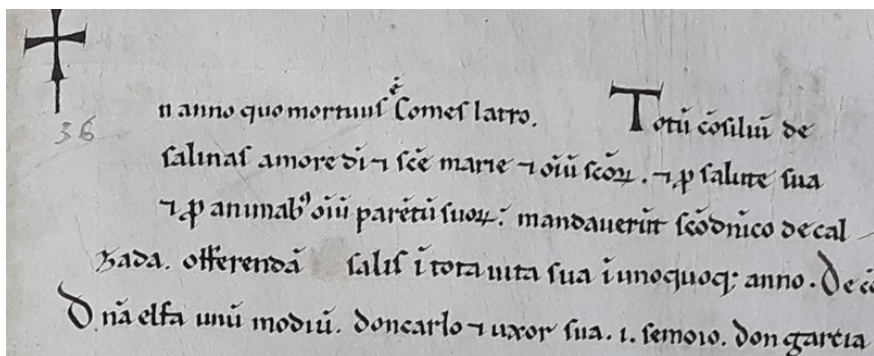 36
n anno quo mortuus ē Comes latro. Totū c̄osiliū de
salinas amore dī ⁊ sc̄e marie ⁊ oīū sc̄oꝝ. ⁊ ꝓ salute sua
⁊ ꝓ animabꝰ oīū parētū suoꝝ: mandauerūt sc̄o dn̄ico de cal
zada. offerendā salis ī tota uita sua ī unoquoqꝫ anno. De
Dn̄a elfa unū modiū. don carlo ⁊ uxor sua .i. semoio. don garcia